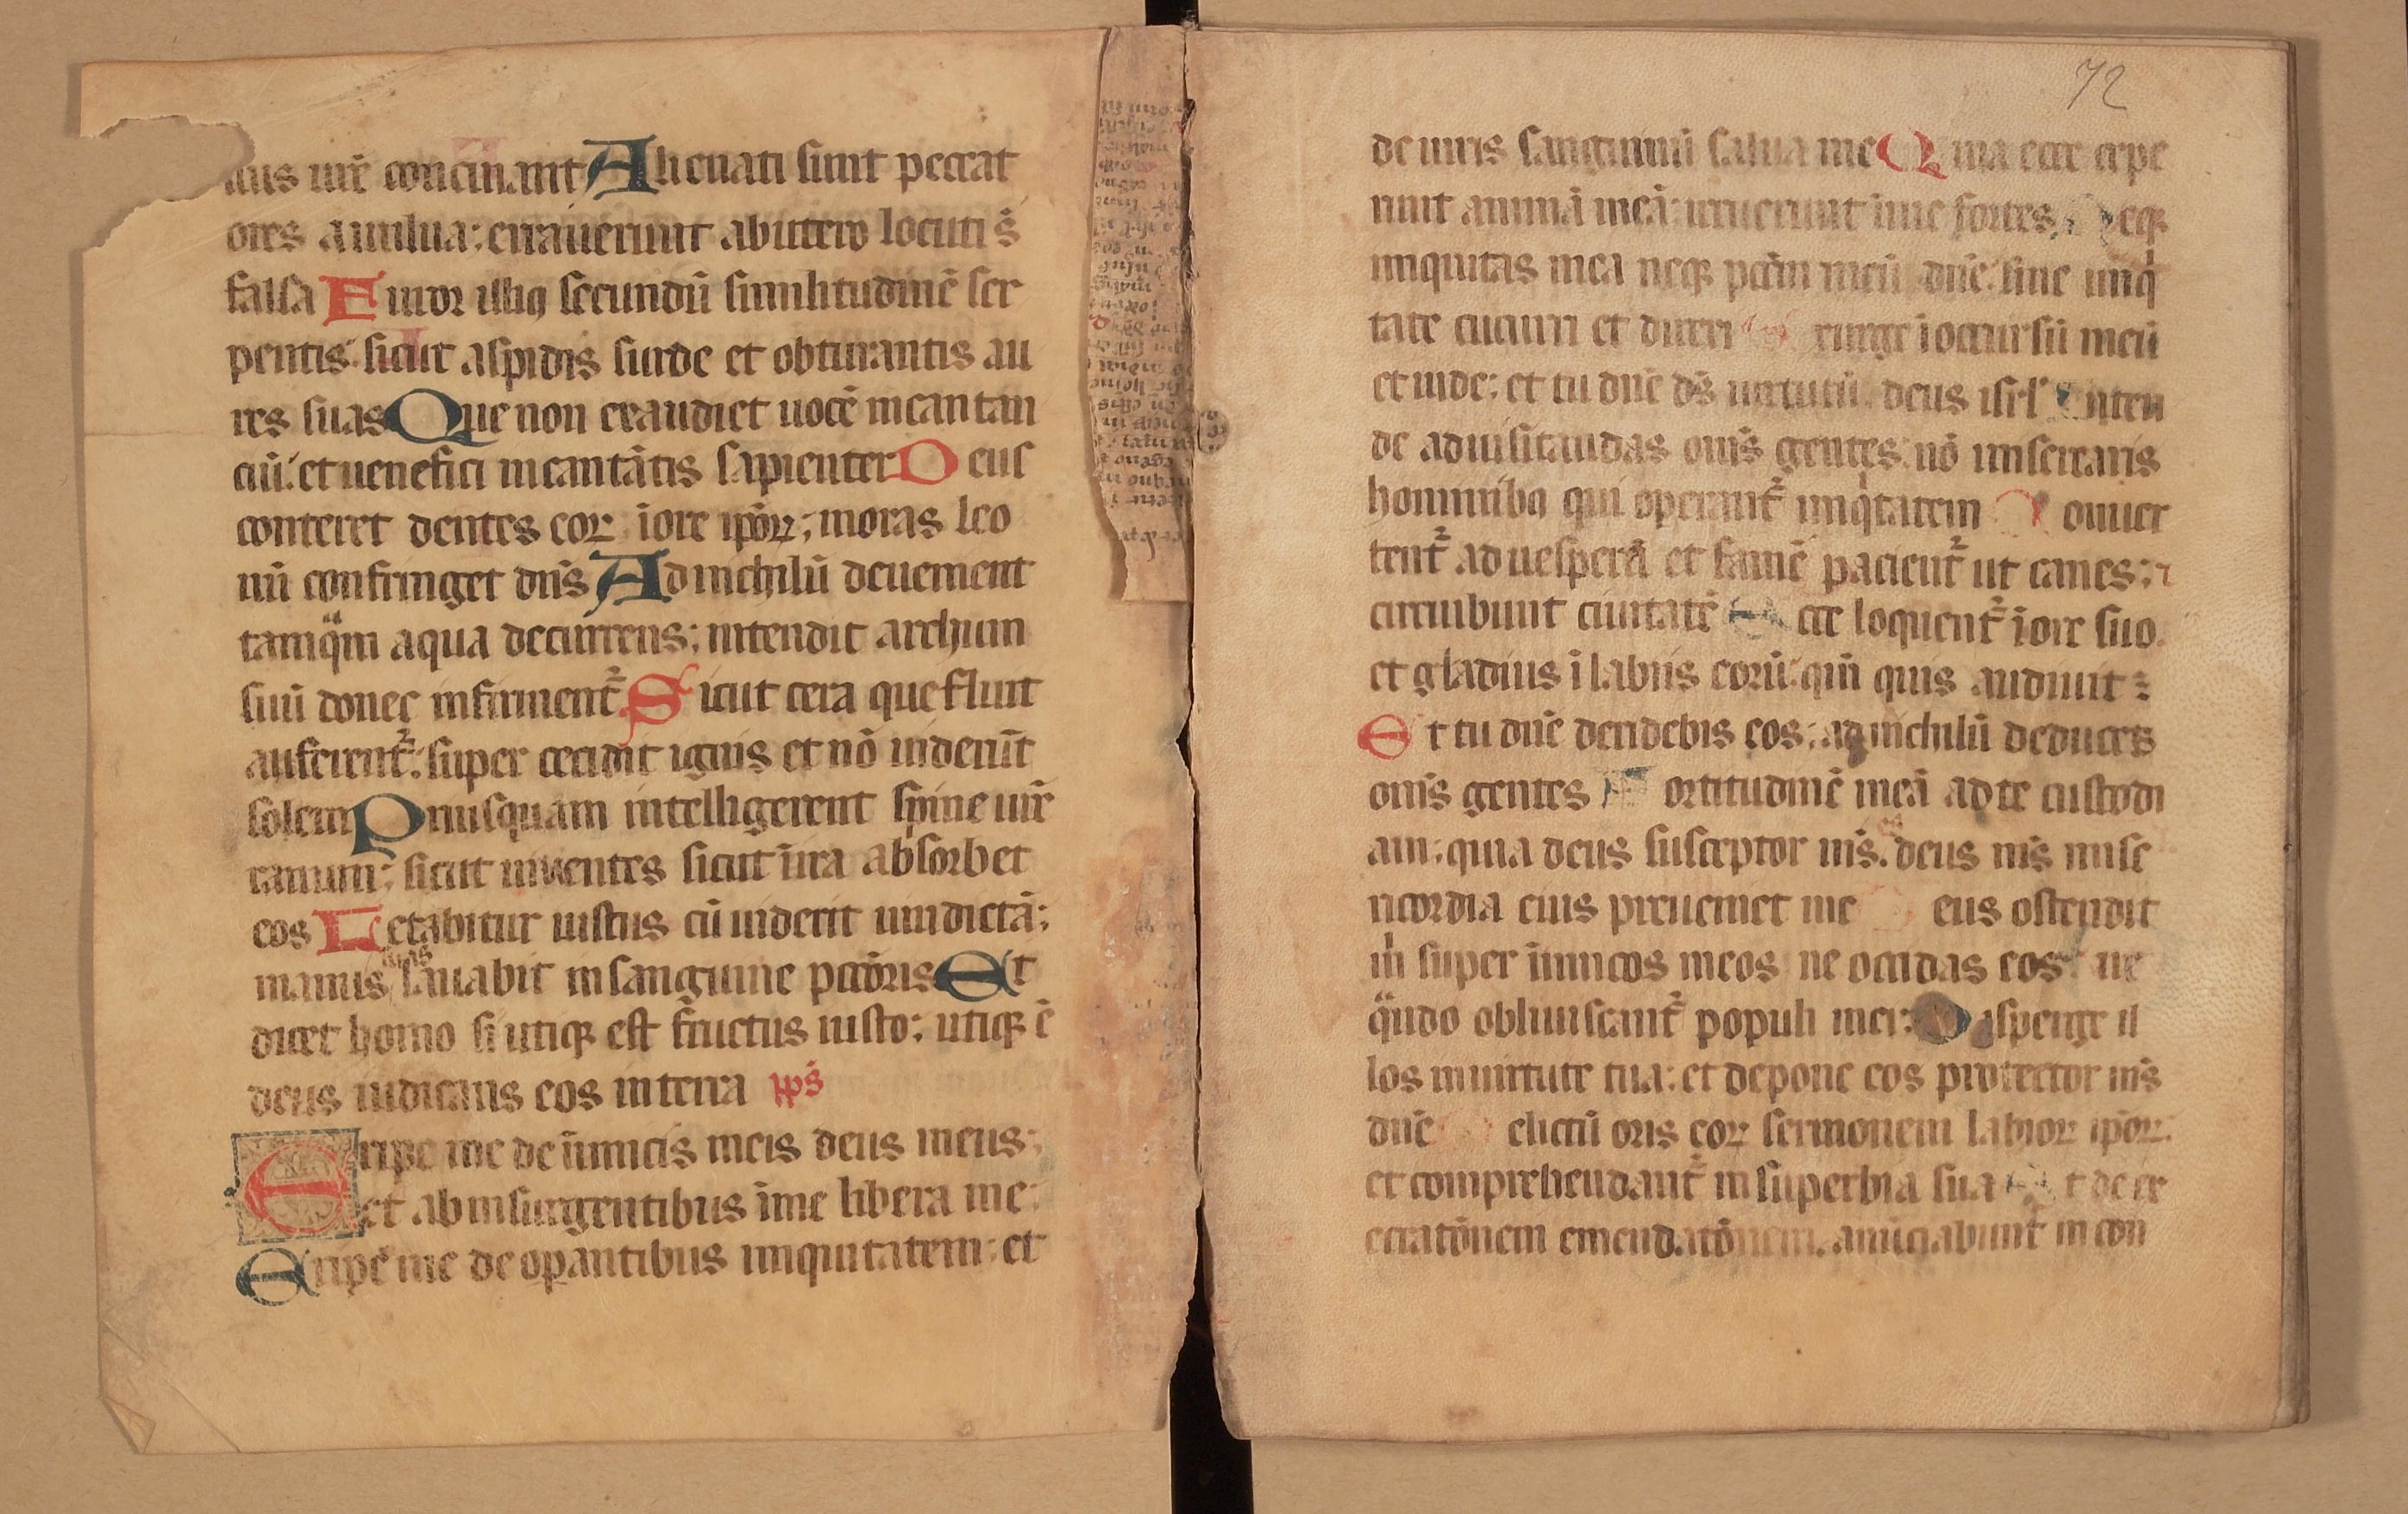 nus ur̄e concinant Alienati sunt peccat
ores a uulua: errauerunt ab utero locuti s̄
falsa Furor illis secundū similitudinē ser
pentis: sicut aspidis surde et obturantis au
res suas Que non exaudiet uocē incantan
ciū: et uenefici incantātis sapienter Deus
conteret dentes eoꝝ ī ore ip̄oꝝ; molas leo
nū confringet dn̄s Ad nichilū deuenient
tamqͣm aqua decurrens; intendit archum
suū donec infirment᷑ Sicut cera que fluit
auferent᷑: super cecidit ignis et nō uider̄ut
solem Priusquam intelligerent spine ur̄e
ramum: sicut uiuentes sicut ī ira absorbet
eos Letabitur iustus cū uiderit uindictā:
manus suas lauabit in sanguine pctōris Et
dicet homo si utiqꝫ est fructus iusto: utiqꝫ ē
deus iudicans eos in terra ps̄
Eripe me de īnimicis meis deus meus:
et ab insurgentibus ī me libera me:
Eripe me de opantibus iniquitatem: et
72
de uiris sanguinū salua me Quia ecce cepe
runt animā meā: irruerunt ī me fortes Neqꝫ
iniquitas mea neqꝫ pctm̄ meū dn̄e: sine iniqͥ
tate cucurri et direxi exurge ī occursū meū
et uide: et tu dn̄e ds̄ uirtutū deus isrl' Inten
de ad uisitandas om̄s gentes: nō miserearis
hominibꝰ qui operant᷑ iniqͥtatem Conuer
tent᷑ ad uesperā et famē pacient᷑ ut canes: ⁊
circuibunt ciuitatē Ecce loquent᷑ ī ore suo
et gladius ī labiis eorū: qm̄ quis audiuit
Et tu dn̄e deridebis eos: ad nichilū deduces
om̄s gentes Fortitudinē meā ad te custodi
am: quia deus susceptor m̄s es deus m̄s mise
ricordia eius preueniet me eus ostendit
m̄ super īnimicos meos ne occidas eos: ne
qͣndo obliuiscant᷑ populi mei: Disperge il
los in uirtute tua: et depone eos protector m̄s
dn̄e elictū oris eoꝝ sermonem labioꝝ ip̄oꝝ:
et comprehendant᷑ in superbia sua Et de ex
ecratōnem emendatōnem. an̄ūciabunt᷑ in con